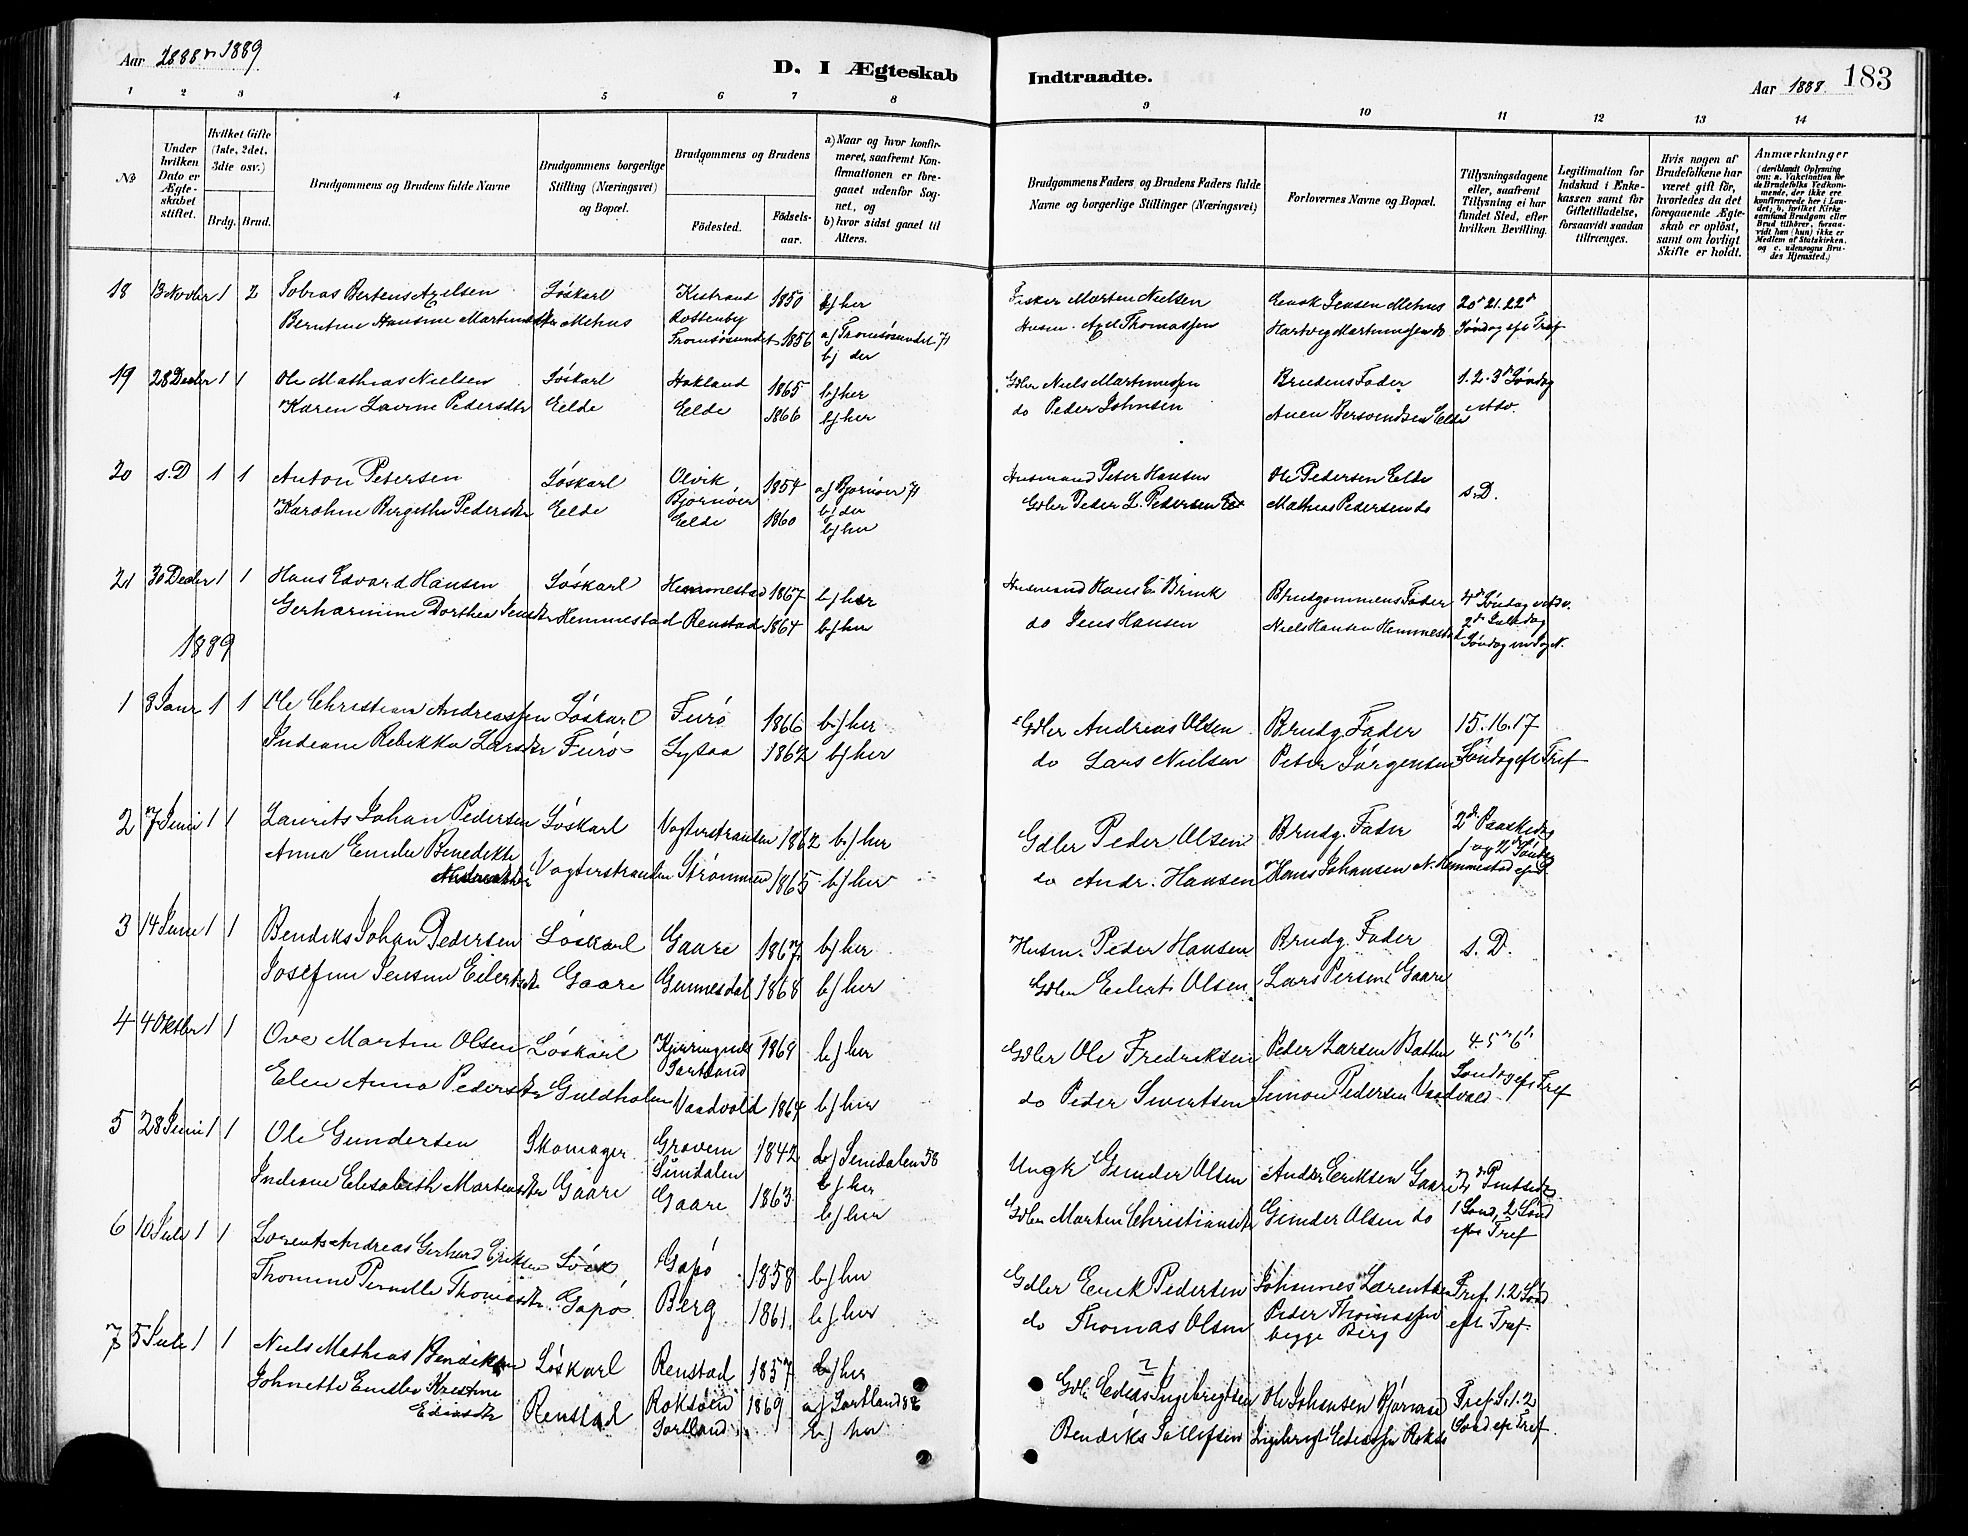 Aar 1888 & 1889
D. I Ægteskab
Indtraadte.
Aar 1888.
183
1
2
3
4
5
6
7
8
9
10
11
12
13
14
No
Under hvilken Dato er Ægteskabet stiftet.
Hvilket Gifte (1ste, 2det. 3die osv.)
Brdg.
Brud.
Brudgommens og Brudens fulde Navne
Brudgommens borgerlige Stilling (Næringsvei) og Bopæl.
Brudgommens og Brudens
Fødested.
Fødselsaar.
a) Naar og hvor konfirmeret, saafremt Konfirmationen er foregaaet udenfor Sognet, og
b) hvor sidst gaaet til Alters.
Brudgommens Faders og Brudens Faders fulde Navne og borgerlige Stillinger (Næringsvei)
Forlovernes Navne og Bopæl.
Tillysningsdagene eller, saafremt Tillysning ei har fundet Sted, efter hvilken Bevilling.
Legitimation for Indskud i Enkekassen samt for Giftetilladelse, forsaavidt saadan tiltrænges.
Hvis nogen af Brudefolkene har været gift før, hvorledes da det foregaaende Ægteskab er opløst, samt om lovligt Skifte er holdt.
Anmærkninger
(deriblandt Oplysning om: a. Vaksination for de Brudefolks Vedkommende, der ikke ere konfirmerede her i Landet, b. hvilket Kirkesamfund Brudgom eller Brud tilhører, forsaavidt han (hun) ikke er Medlem af Statskirken, og c. udensogns Brudes Hjemsted.)
18 13 Novbr 1 2 Tobias Bertens Axelsen Löskarl Kistrand 1850 b) her Fisker Morten Nielsen Enok Jensen Mehus 20d 21. 22d
Berntine Hansine Martinsdtr Mehus Rottenby Tromsøsundet 1856 a) Tromsøsundet 71 b) der Husm. Axel Thomassen Hartvig Martinussen do Søndag eft Tref
19 28 Decbr 1 1 Ole Mathias Nielsen Löskarl Hokland 1865 b) her Gdbr Niels Martinussen Brudens Fader 1. 2. 3d Søndag
Karen Lavine Pedersdtr Elde Elde 1866 b) her do Peder Johnsen Anen Bersvendsen Elde Adv.
20 s. D 1 1 Anton Petersen Löskarl Olvik Bjørnøer 1854 a) Bjørnøer 71 b) der Husmand Peter Hansen Ole Pedersen Elde s. D.
Karoline Bergithe Pedersdtr Elde Elde 1860 b) her Gdbr Peder L. Pedersen Mathias Pedersen do
21 30 Decbr 1 1 Hans Edvard Hansen Löskarl Hemmestad 1867 b) her Husmand Hans E. Brink Brudgommens Fader 4d Søndag i Adv.
Gerhardine Dorthea Jensdtr Hemmestad Renstad 1864 b) her do Jens Hansen Niels Hansen Hemmestad 2d Juledag
Søndag
1889
1 3 Janr 1 1 Ole Christian Andreassen Löskarl Furö 1866 b) her Gdbr Andreas Olsen Brudg. Fader 15. 16. 17
Indiane Rebikka Larsdtr Furö 1862 b) her do Lars Nielsen Peter Jörgensen Søndag eft Tref
2 7 Juni 1 1 Laurits Johan Pedersen Löskarl Vogterstranden 1862 b) her Gdbr Peder Olsen Brudg. Fader 2d Paaskedag
Anna Emilie Benedikte Vogterstranden Strømmen 1865 b) her do Andr. Hansen Hans Johansen N. Hemmestad
3 14 Juni 1 1 Bendiks Johan Pedersen Löskarl Gaare 1867 b) her Husm. Peder Hansen Brudg. Fader s. D.
Josefine Jensine Eilertsdtr Gaare Gunnesdal 1868 b) her Gdbr Eilert Olsen Lars Persen Gaare
4 4 Oktbr 1 1 Ove Martin Olsen Löskarl Kjerringnes Sortland 1869 b) her Gdbr Ole Fredriksen Peder Larsen 4. 5 6
Elen Anna Pedersdtr Guldholen Vaadvold 1864 b) her do Peder Sivertsen Simon Pedersen Vaadvold Søndag eft Tref
5 28 Juni 1 1 Ole Gundersen Skomager Groven Sundalen 1842 a) Sundalen 58 b) her Ungk Gunder Olsen Anders Eriksen Gaare 2d Pintsed.
Indiane Elisabeth Martensdtr Gaare Gaare 1863 b) her Gdbr Morten Christiansen Gunder Olsen do 1 Sönd, 2 Sönd
efter Tref
6 10 Juli 1 1 Lorents Andreas Gerhard Eriksen Lösk Gapö 1858 b) her Gdbr Erick Pedersen Johannes Larentsen Tref. 1. 2 Sönd
Thomine Pernille Thomasdtr. Gapö Berg 1861. b) her do Thomas Olsen Peder Thomassen begge Berg eft Tref.
7 5 Juli 1 1 Niels Mathias Bendiksen Löskarl Renstad 1857 b) her Gdbr Edeas Ingebrigtsen Ole Johansen Tref. S. 1. 2
Johnette Emilie Kristine Ediasdtr Renstad Roksöen Sortland 1869 a) Sortland 86 b) her Bendiks Tollefsen Ingebrigt Ediassen Roksö Sönd eft Tref.